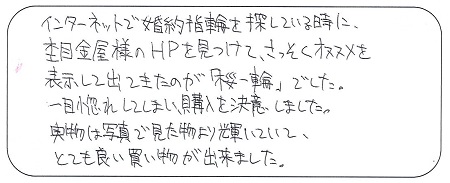 インターネットで婚約指輪を探している時に、
杢目金屋様のHPを見つけて、さっそくオススメを
表示して出てきたのが「桜一輪」でした。
一目惚れしてしまい、購入を決意しました。
実物は写真で見た物より輝いていて、
とても良い買い物が出来ました。